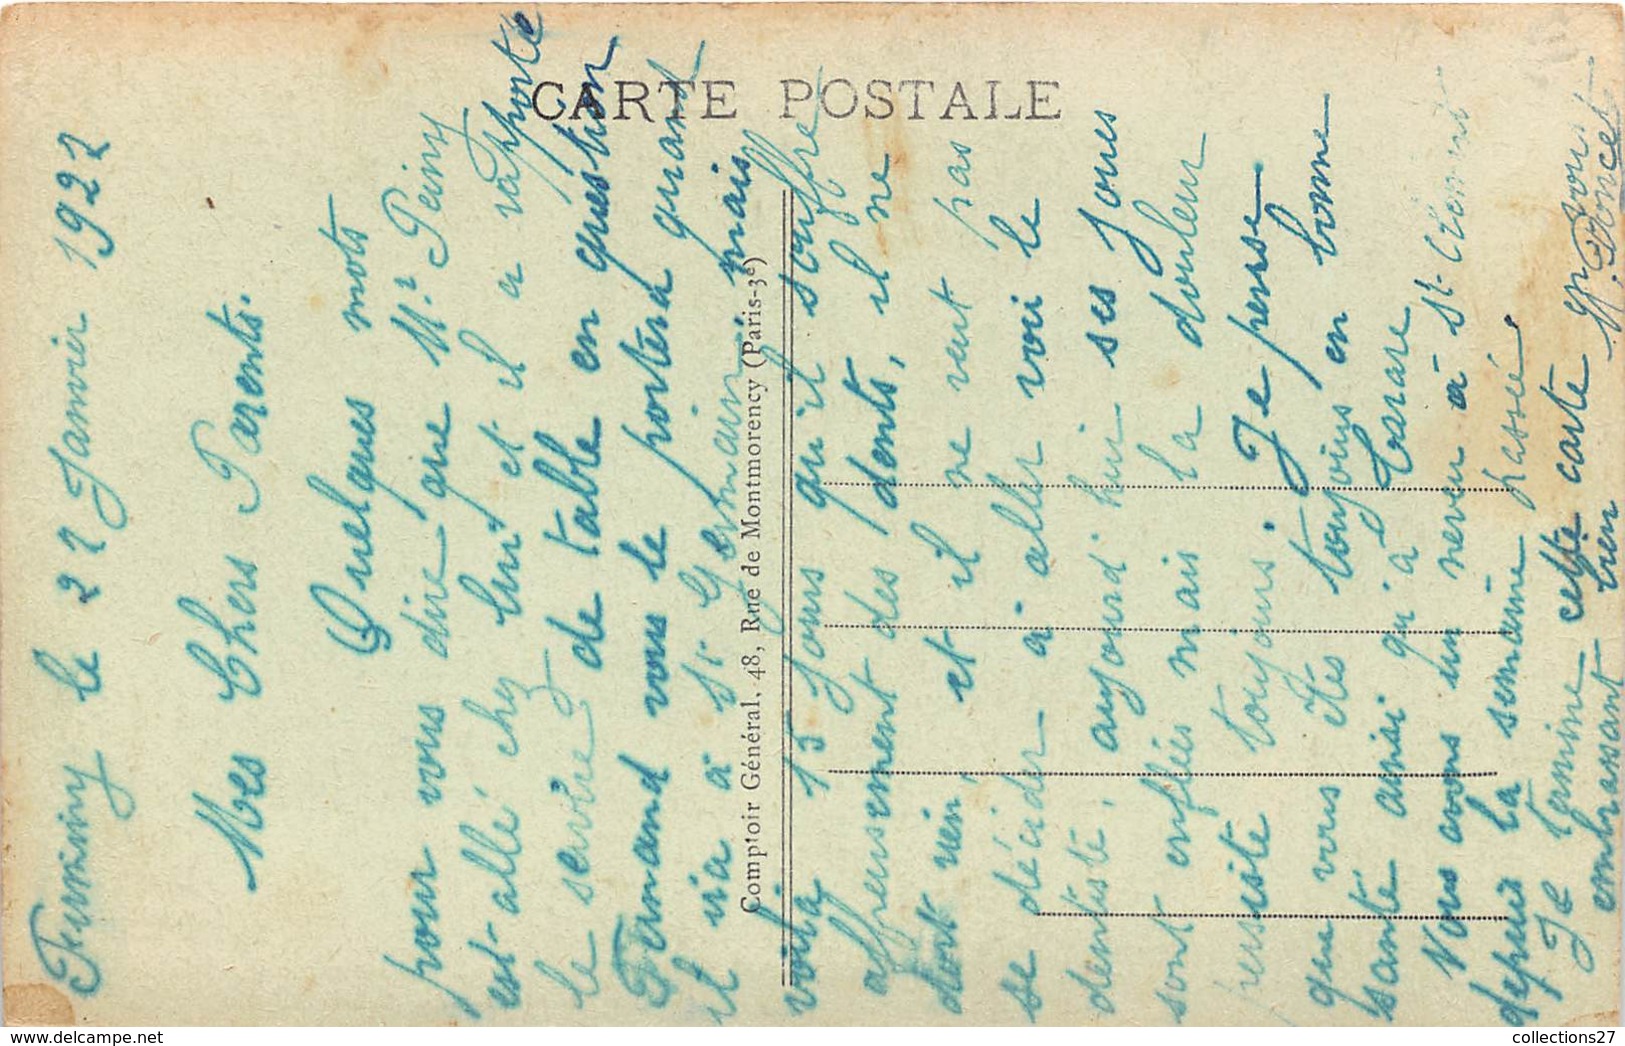 CARTE POSTALE
Comptoir Général, 48, Rue de Montmorency (Paris-3e)
Firminy le 22 Janvier 1922
Mes Chers Parents.
Quelques mots
pour vous dire que Mr Peiny
est allé chez lui et il a rapporté
le service de table en question
Fernand vous le portera quand
il ira à St Germain, mais
voilà 15 Jours qu'il souffre
affreusement des dents, il ne
dort rien, et il ne veut pas
se décider à aller voir le
dentiste, aujourd'hui ses Joues
sont enflées mais la douleur
persiste toujours. Je pense
que vous êtes toujours en bonne
santé ainsi qu'à Tarare
Nous avons un neveu à St-Clément
depuis la semaine passée.
Je termine cette carte en vous
embrassant bien M. Poncet
collections27